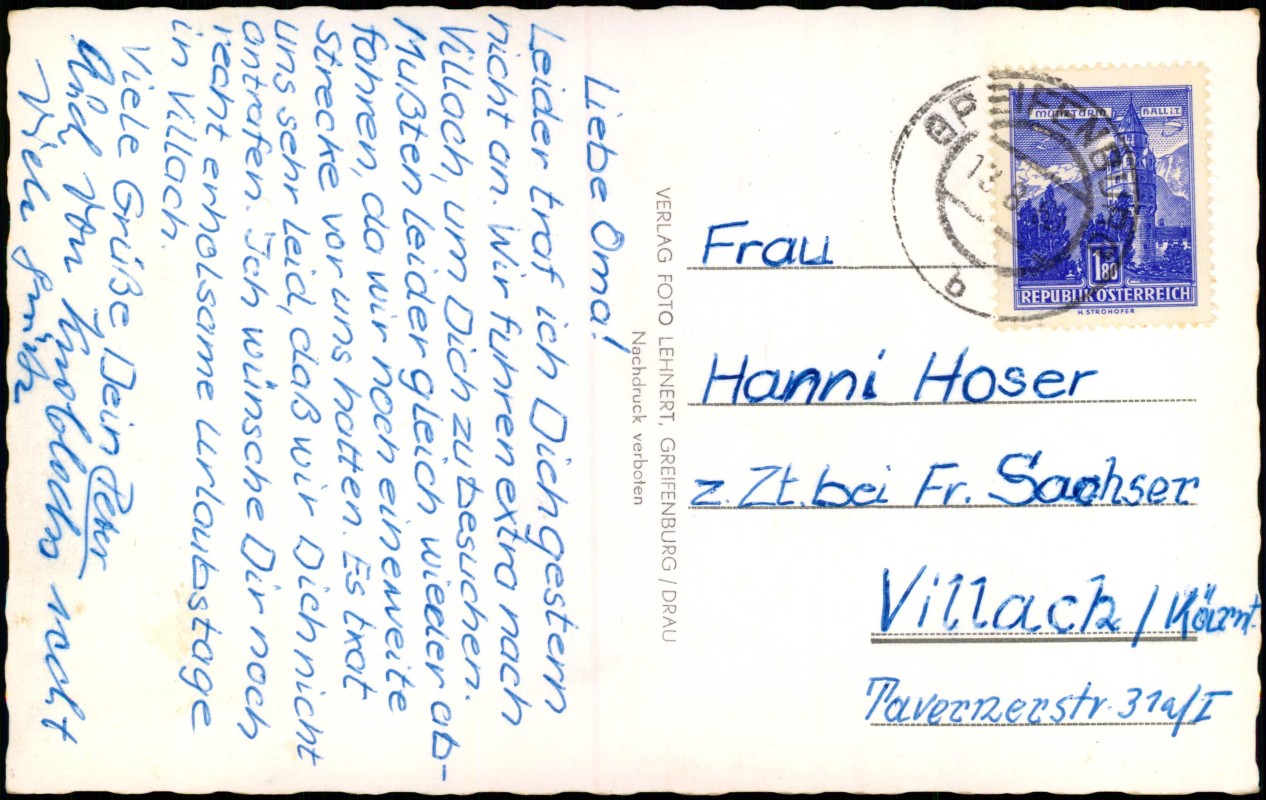 Liebe Oma!
Leider traf ich Dich gestern
nicht an. Wir fuhren extra nach
Villach, um Dich zu besuchen.
Mußten leider gleich wieder ab-
fahren, da wir noch eine weite
Strecke vor uns hatten. Es trat
uns sehr leid, daß wir Dich nicht
antrafen. Ich wünsche Dir noch
recht erholsame Urlaubstage
in Villach.
Viele Grüße Dein Peter
Auch von
viele Grüße
VERLAG FOTO LEHNERT, GREIFENBURG/DRAU
Nachdruck verboten
MÜNZTURM HALL i.T.
1.80
REPUBLIK ÖSTERREICH
H. STROHOFER
GREIFENBURG
13. 8.
b
Frau
Hanni Hoser
z. Zt. bei Fr. Sachser
Villach/Kärnt.
Tavernerstr. 31a/I